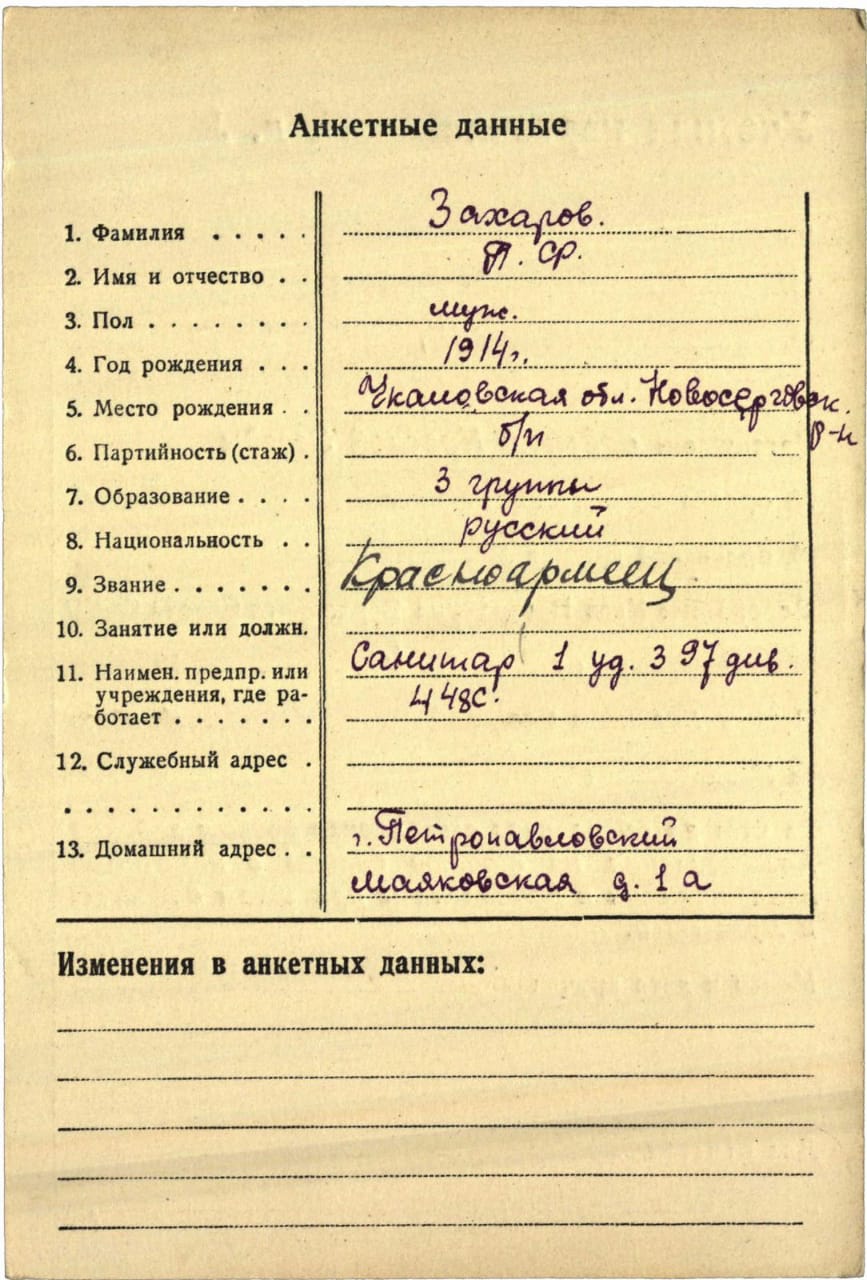 Анкетные данные
1. Фамилия . . . . . Захаров.
2. Имя и отчество . . П. Ф.
3. Пол . . . . . . . . муж.
4. Год рождения . . . 1914 г.
5. Место рождения . . Чкаловская обл. Новосергевск.
р-н
6. Партийность (стаж) . б/п
7. Образование . . . . 3 группы
8. Национальность . . русский
9. Звание . . . . . . . Красноармеец
10. Занятие или должн.
11. Наимен. предпр. или Санитар 1 уд. 397 див.
учреждения, где ра- 448с.
ботает . . . . . . .
12. Служебный адрес .
. . . . . . . . . . . .
13. Домашний адрес . . г. Петропавловский
Маяковская д. 1 а
Изменения в анкетных данных: